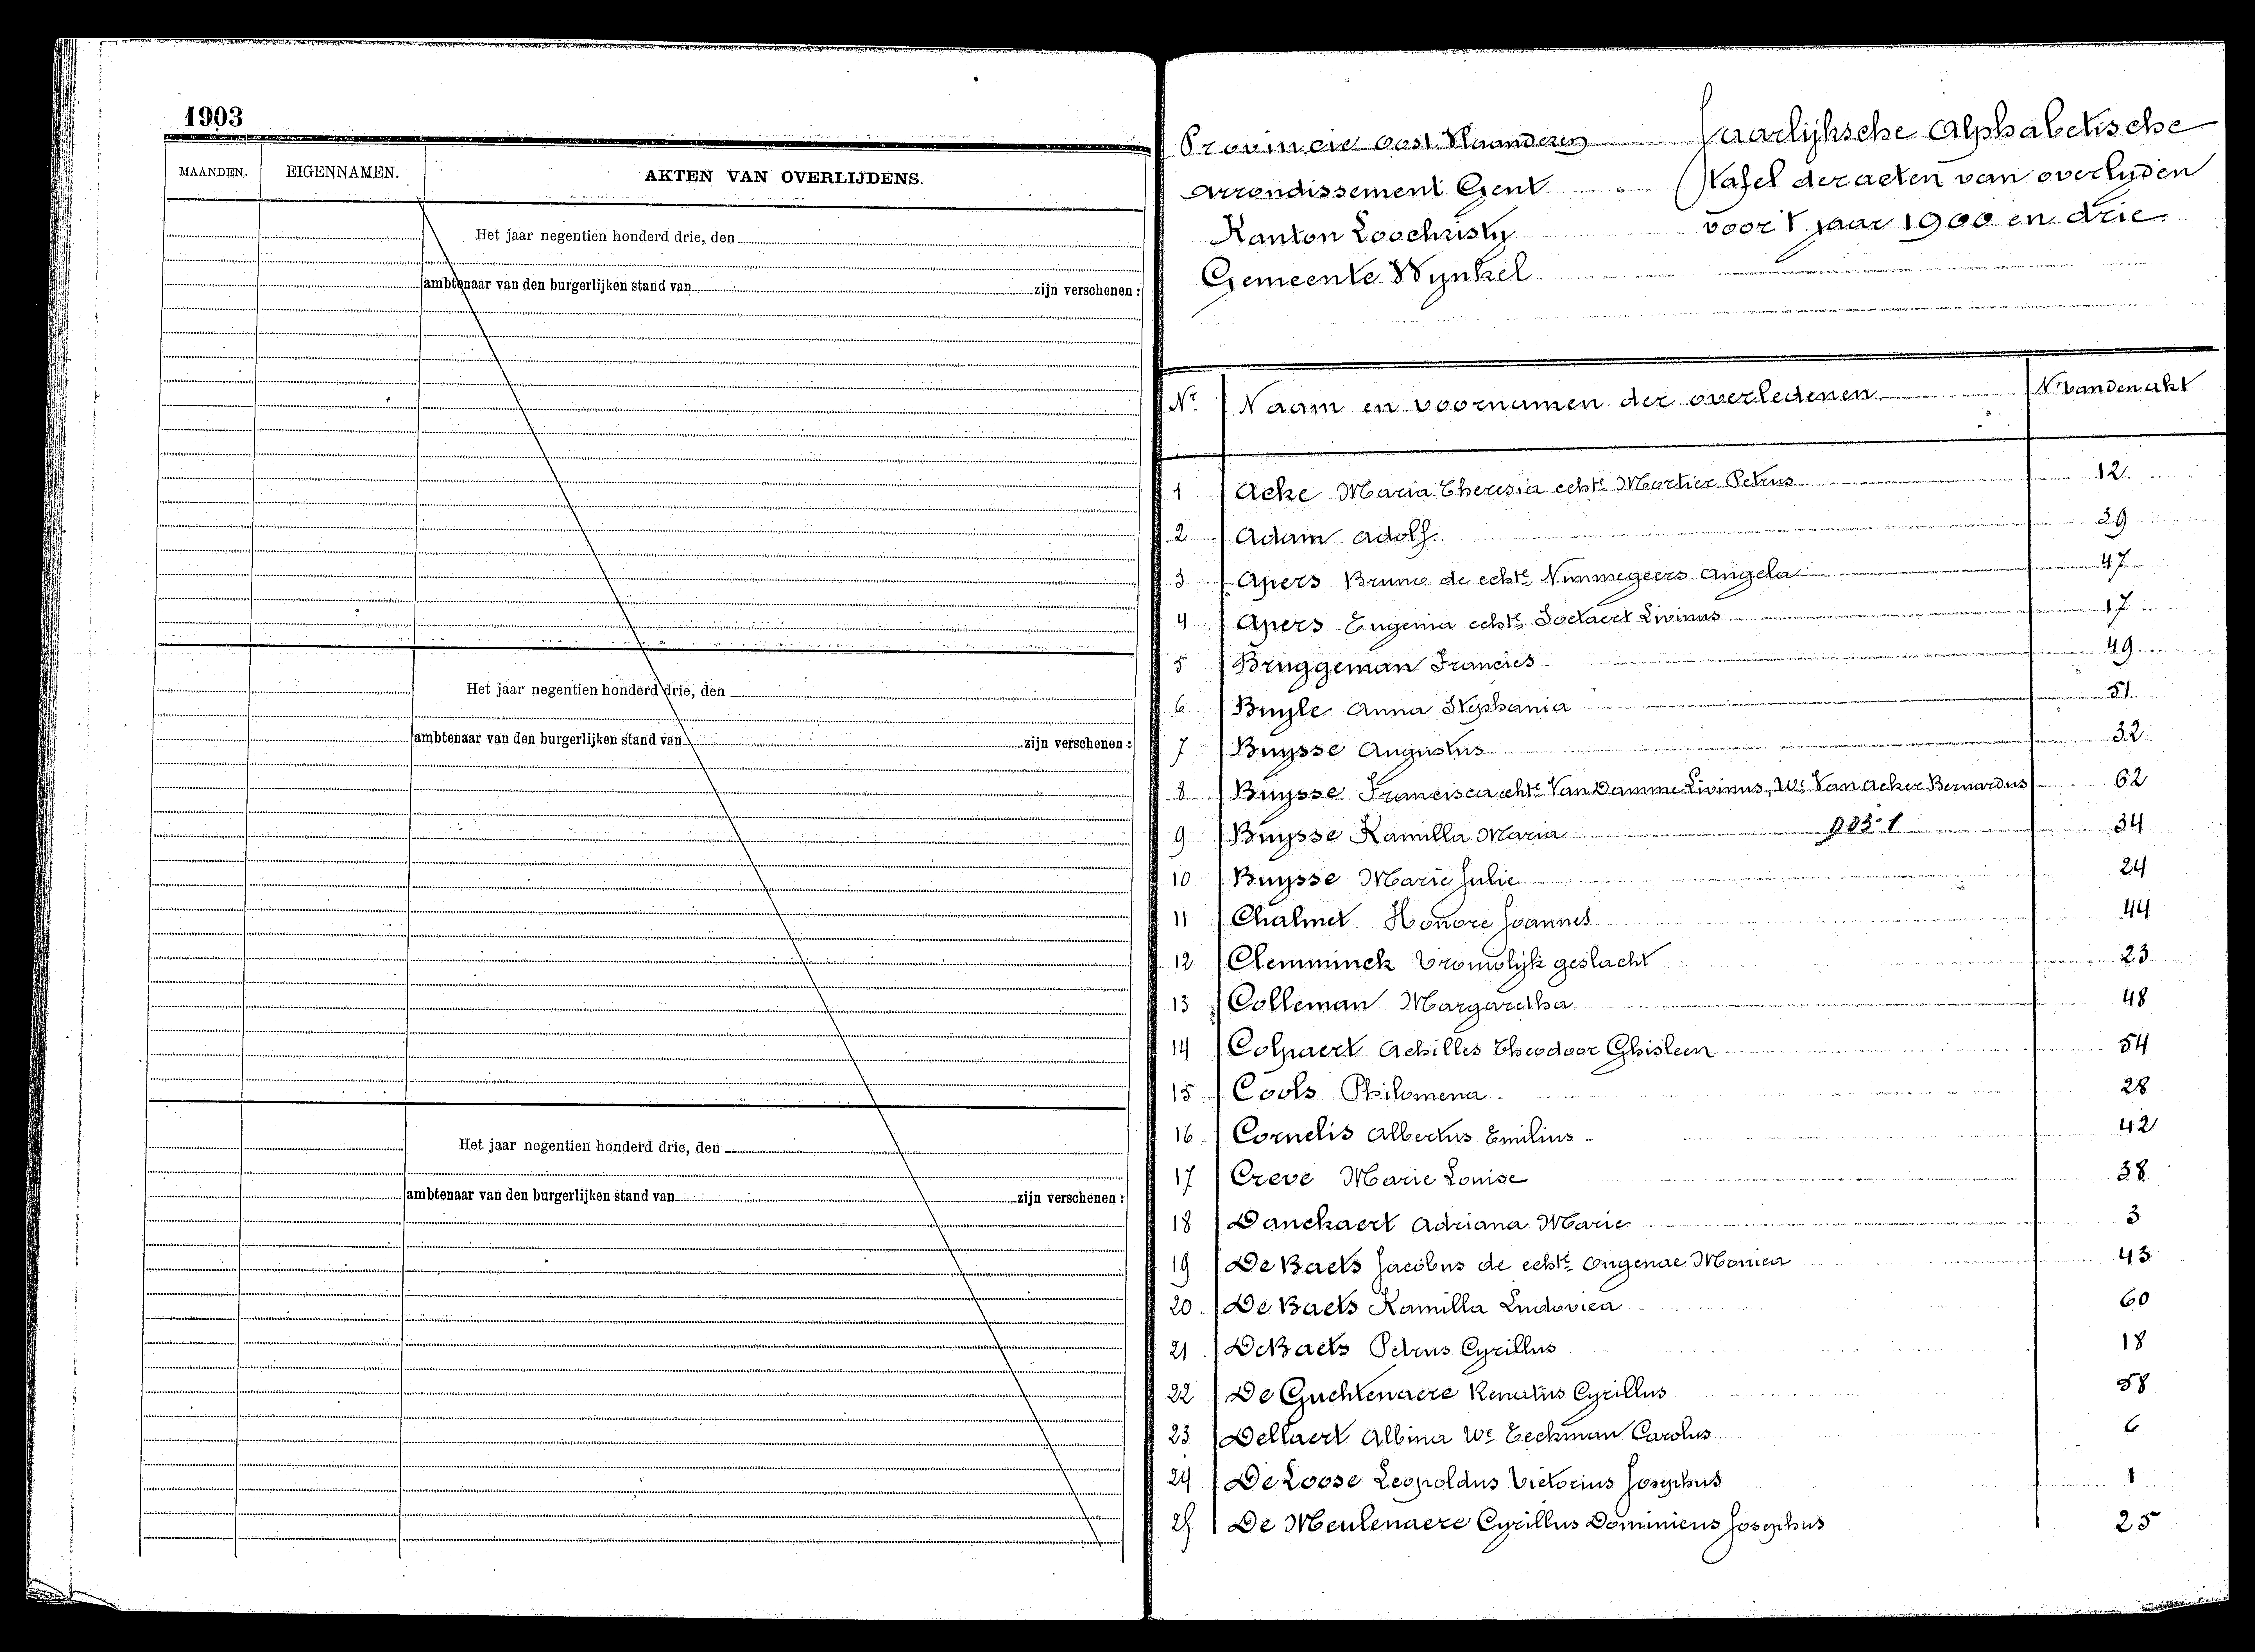 1903
MAANDEN. EIGENNAMEN. AKTEN VAN OVERLIJDENS.
Het jaar negentien honderd drie, den
ambtenaar van den burgerlijken stand van zijn verschenen :
Het jaar negentien honderd drie, den
ambtenaar van den burgerlijken stand van zijn verschenen :
Het jaar negentien honderd drie, den
ambtenaar van den burgerlijken stand van zijn verschenen :
Provincie Oost Vlaanderen
Arrondissement Gent
Kanton Loochristy
Gemeente Wynkel
Jaarlijksche Alphabetische
Tafel der acten van overlyden
voor 't jaar 1900 en drie.
Nr. Naam en voornamen der overledenen Nr van den akt
1 Acke Maria Theresia echte Mortier Petrus 12
2 Adam Adolf 39
3 Apers Bruno de echte Nimmegeers Angela 47
4 Apers Eugenia echte Soetaert Livinus 17
5 Bruggeman Francies 49
6 Buyle Anna Stephania 51
7 Buysse Augustus 32
8 Buysse Francisca echte Van Damme Livinus, We Van Acker Bernardus 62
9 Buysse Kamilla Maria 34
10 Buysse Marie Julie 24
11 Chalmet Honore Joannes 44
12 Clemminck Vrouwlijk geslacht 23
13 Colleman Margaretha 48
14 Colpaert Achilles Theodoor Ghisleen 54
15 Cools Philomena 28
16 Cornelis Albertus Emilius 42
17 Creve Marie Louise 38
18 Danckaert Adriana Marie 3
19 De Baets Jacobus de echte Ongenae Monica 43
20 De Baets Kamilla Ludovica 60
21 De Baets Petrus Cyrillus 18
22 De Guchtenaere Renatus Cyrillus 58
23 Dellaert Albina We Eeckman Carolus 6
24 De Loose Leopoldus Victorius Josephus 1
25 De Meulenaere Cyrillus Dominicus Josephus 25